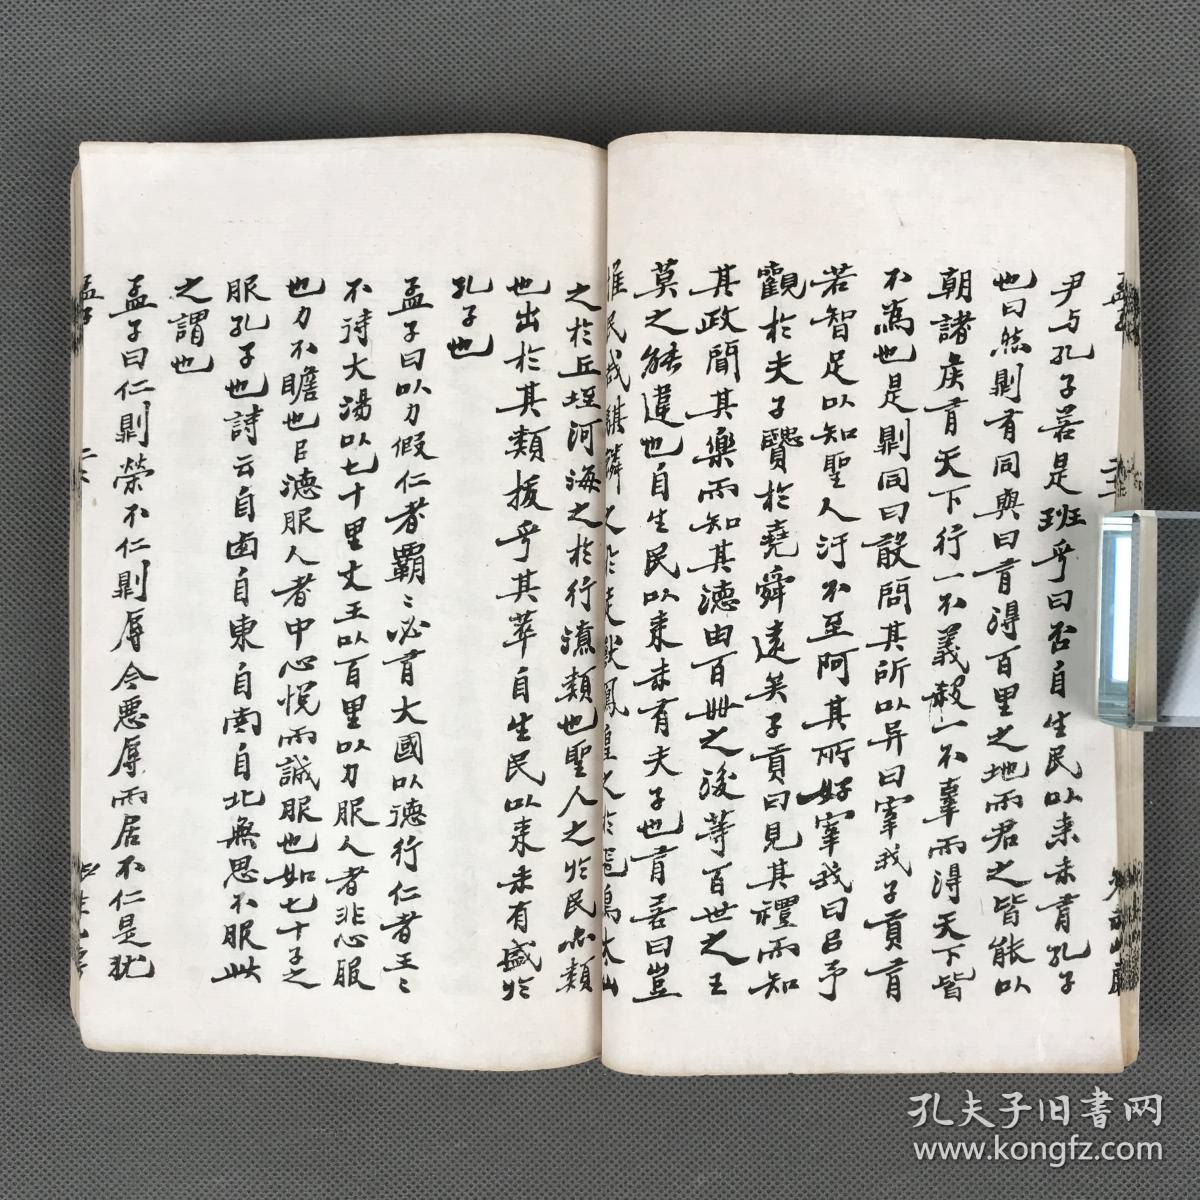 尹与孔子若是班乎曰否自生民以来未有孔子
也曰然則有同與曰有得百里之地而君之皆能以
朝諸矦有天下行一不義殺一不辜而得天下皆
不為也是則同曰敢問其所以异曰宰我子貢有
若智足以知聖人汙不至阿其所好宰我曰吕予
觀於夫子賢於堯舜遠矣子貢曰見其禮而知
其政聞其樂而知其德由百世之後等百世之王
莫之能違也自生民以来未有夫子也有若曰豈
惟民哉麒麟之於走獸鳳凰之於飛鳥太山
之於丘垤河海之於行潦類也聖人之於民亦類
也出於其類拔乎其萃自生民以来未有盛於
孔子也
孟子曰以力假仁者霸〻必有大國以德行仁者王〻
不待大湯以七十里文王以百里以力服人者非心服
也力不贍也吕德服人者中心悦而誠服也如七十子之
服孔子也詩云自西自東自南自北無思不服此
之謂也
孟子曰仁則榮不仁則辱今惡辱而居不仁是犹
孟子
孔夫子旧書网
www.kongfz.com